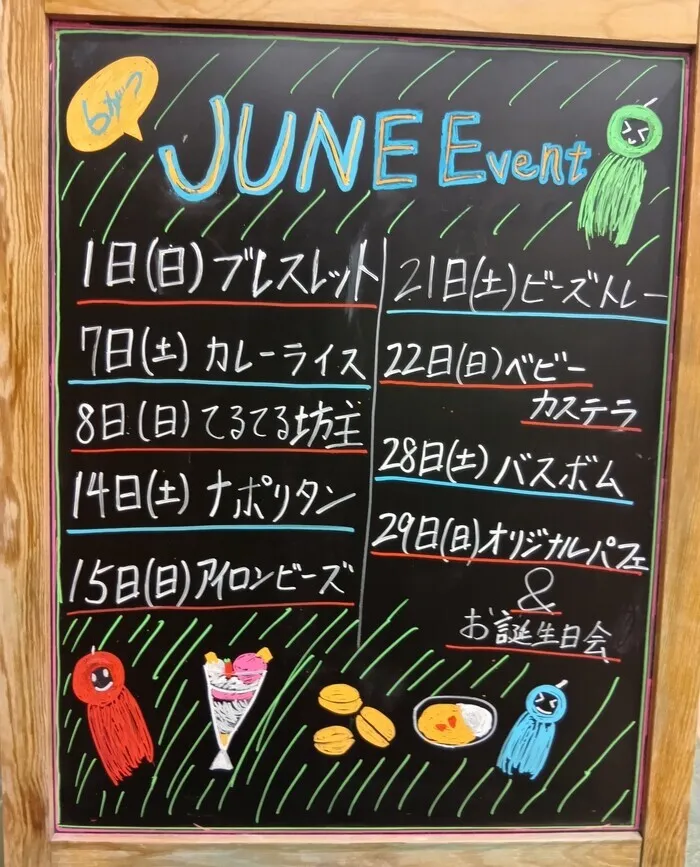 6がつ
JUNE Event
1日(日)ブレスレット
7日(土)カレーライス
8日(日)てるてる坊主
14日(土)ナポリタン
15日(日)アイロンビーズ
21日(土)ビーズトレー
22日(日)ベビー
カステラ
28日(土)バスボム
29日(日)オリジナルパフェ
&
お誕生日会